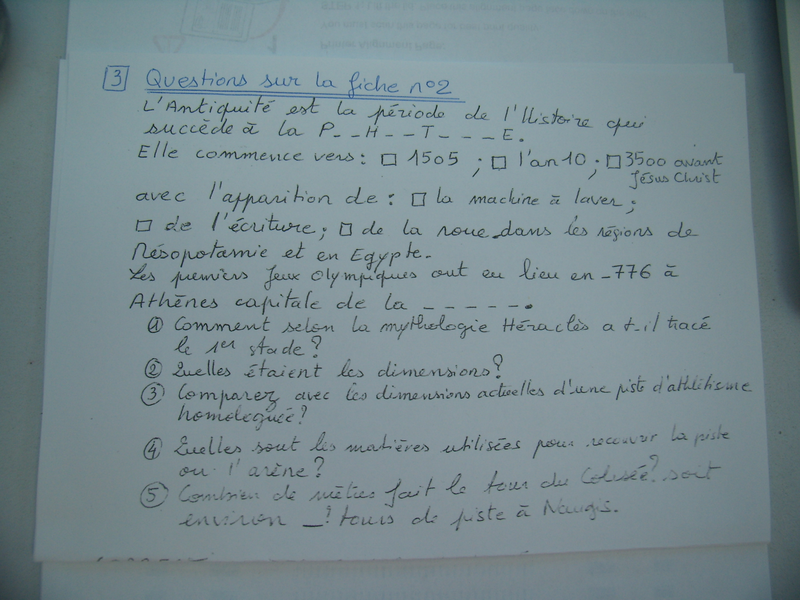 3 Questions sur la fiche n°2
L'Antiquité est la période de l'Histoire qui
succède à la P_ _ H_ _ T_ _ _ E.
Elle commence vers : □ 1505 ; □ l'an 10 ; □ 3500 avant
Jésus Christ
avec l'apparition de : □ la machine à laver ;
□ de l'écriture ; □ de la roue dans les régions de
Mésopotamie et en Egypte.
Les premiers Jeux Olympiques ont eu lieu en -776 à
Athènes capitale de la _ _ _ _ _ _.
① Comment selon la mythologie Héraclès a t-il tracé
le 1er stade ?
② Quelles étaient les dimensions ?
③ Comparez avec les dimensions actuelles d'une piste d'athlétisme
homologuée ?
④ Quelles sont les matières utilisées pour recouvrir la piste
ou l'arène ?
⑤ Combien de mètres fait le tour du Colisée ? soit
environ _? tours de piste à Nangis.